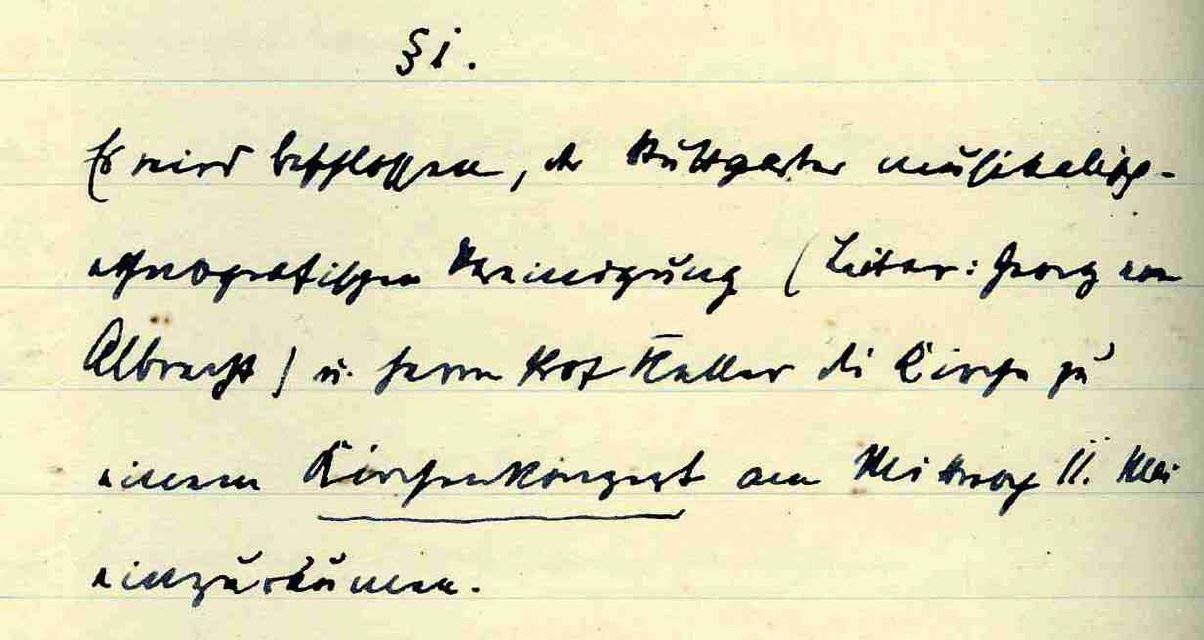 § 1.
Es wird beschlossen, der Stuttgarter musikalisch-
ethnografischen Vereinigung (Leiter: Georg von
Albrecht) u. Herrn Prof Keller die Kirche zu
einem Kirchenkonzert am Mittwoch 11. Mai
einzuräumen.